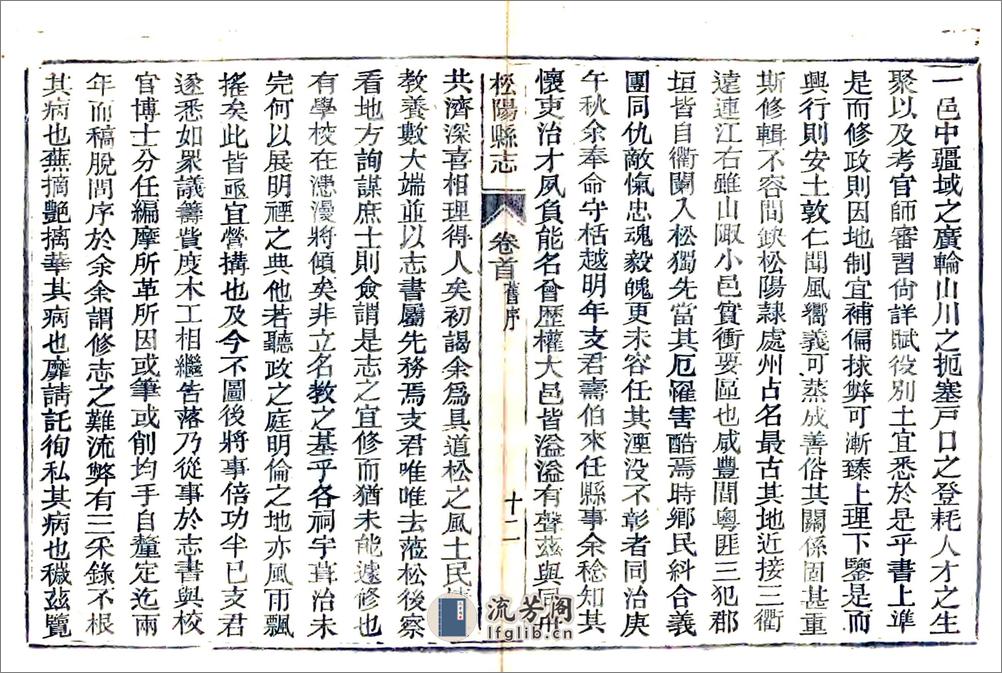 一邑中疆域之廣輪山川之扼塞戸口之登耗人才之生
聚以及考官師審習尙詳賦役別土宜悉於是乎書上準
是而修政則因地制宜補偏捄弊可漸臻上理下鑒是而
興行則安土敦仁聞風嚮義可蒸成善俗其關係固甚重
斯修輯不容間缺松陽隸處州占名最古其地近接三衢
遠連江右雖山陬小邑實衝要區也咸豐間粵匪三犯郡
垣皆自衢闌入松獨先當其厄罹害酷焉時鄉民糾合義
團同仇敵愾忠魂毅魄更未容任其湮没不彰者同治庚
午秋余奉命守栝越明年支君壽伯來任縣事余稔知其
懷吏治才夙負能名曾歷權大邑皆溢溢有聲茲與同舟
松陽縣志 卷首 舊序 十二
共濟深喜相理得人矣初謁余爲具道松之風土民
教養數大端並以志書屬先務焉支君唯唯去蒞松後察
看地方詢謀庶士則僉謂是志之宜修而猶未能遽修也
有學校在漶漫將傾矣非立名教之基乎各祠宇葺治未
完何以展明禋之典他若聽政之庭明倫之地亦風雨飄
搖矣此皆亟宜營搆也及今不圖後將事倍功半已支君
遂悉如衆議籌貲度木工相繼告落乃從事於志書與校
官博士分任編摩所革所因或筆或削均手自釐定迄兩
年而稿脫問序於余余謂修志之難流弊有三采錄不根
其病也蕪摛艷摘華其病也靡請託徇私其病也穢茲覽
流芳阁
lfglib.cn